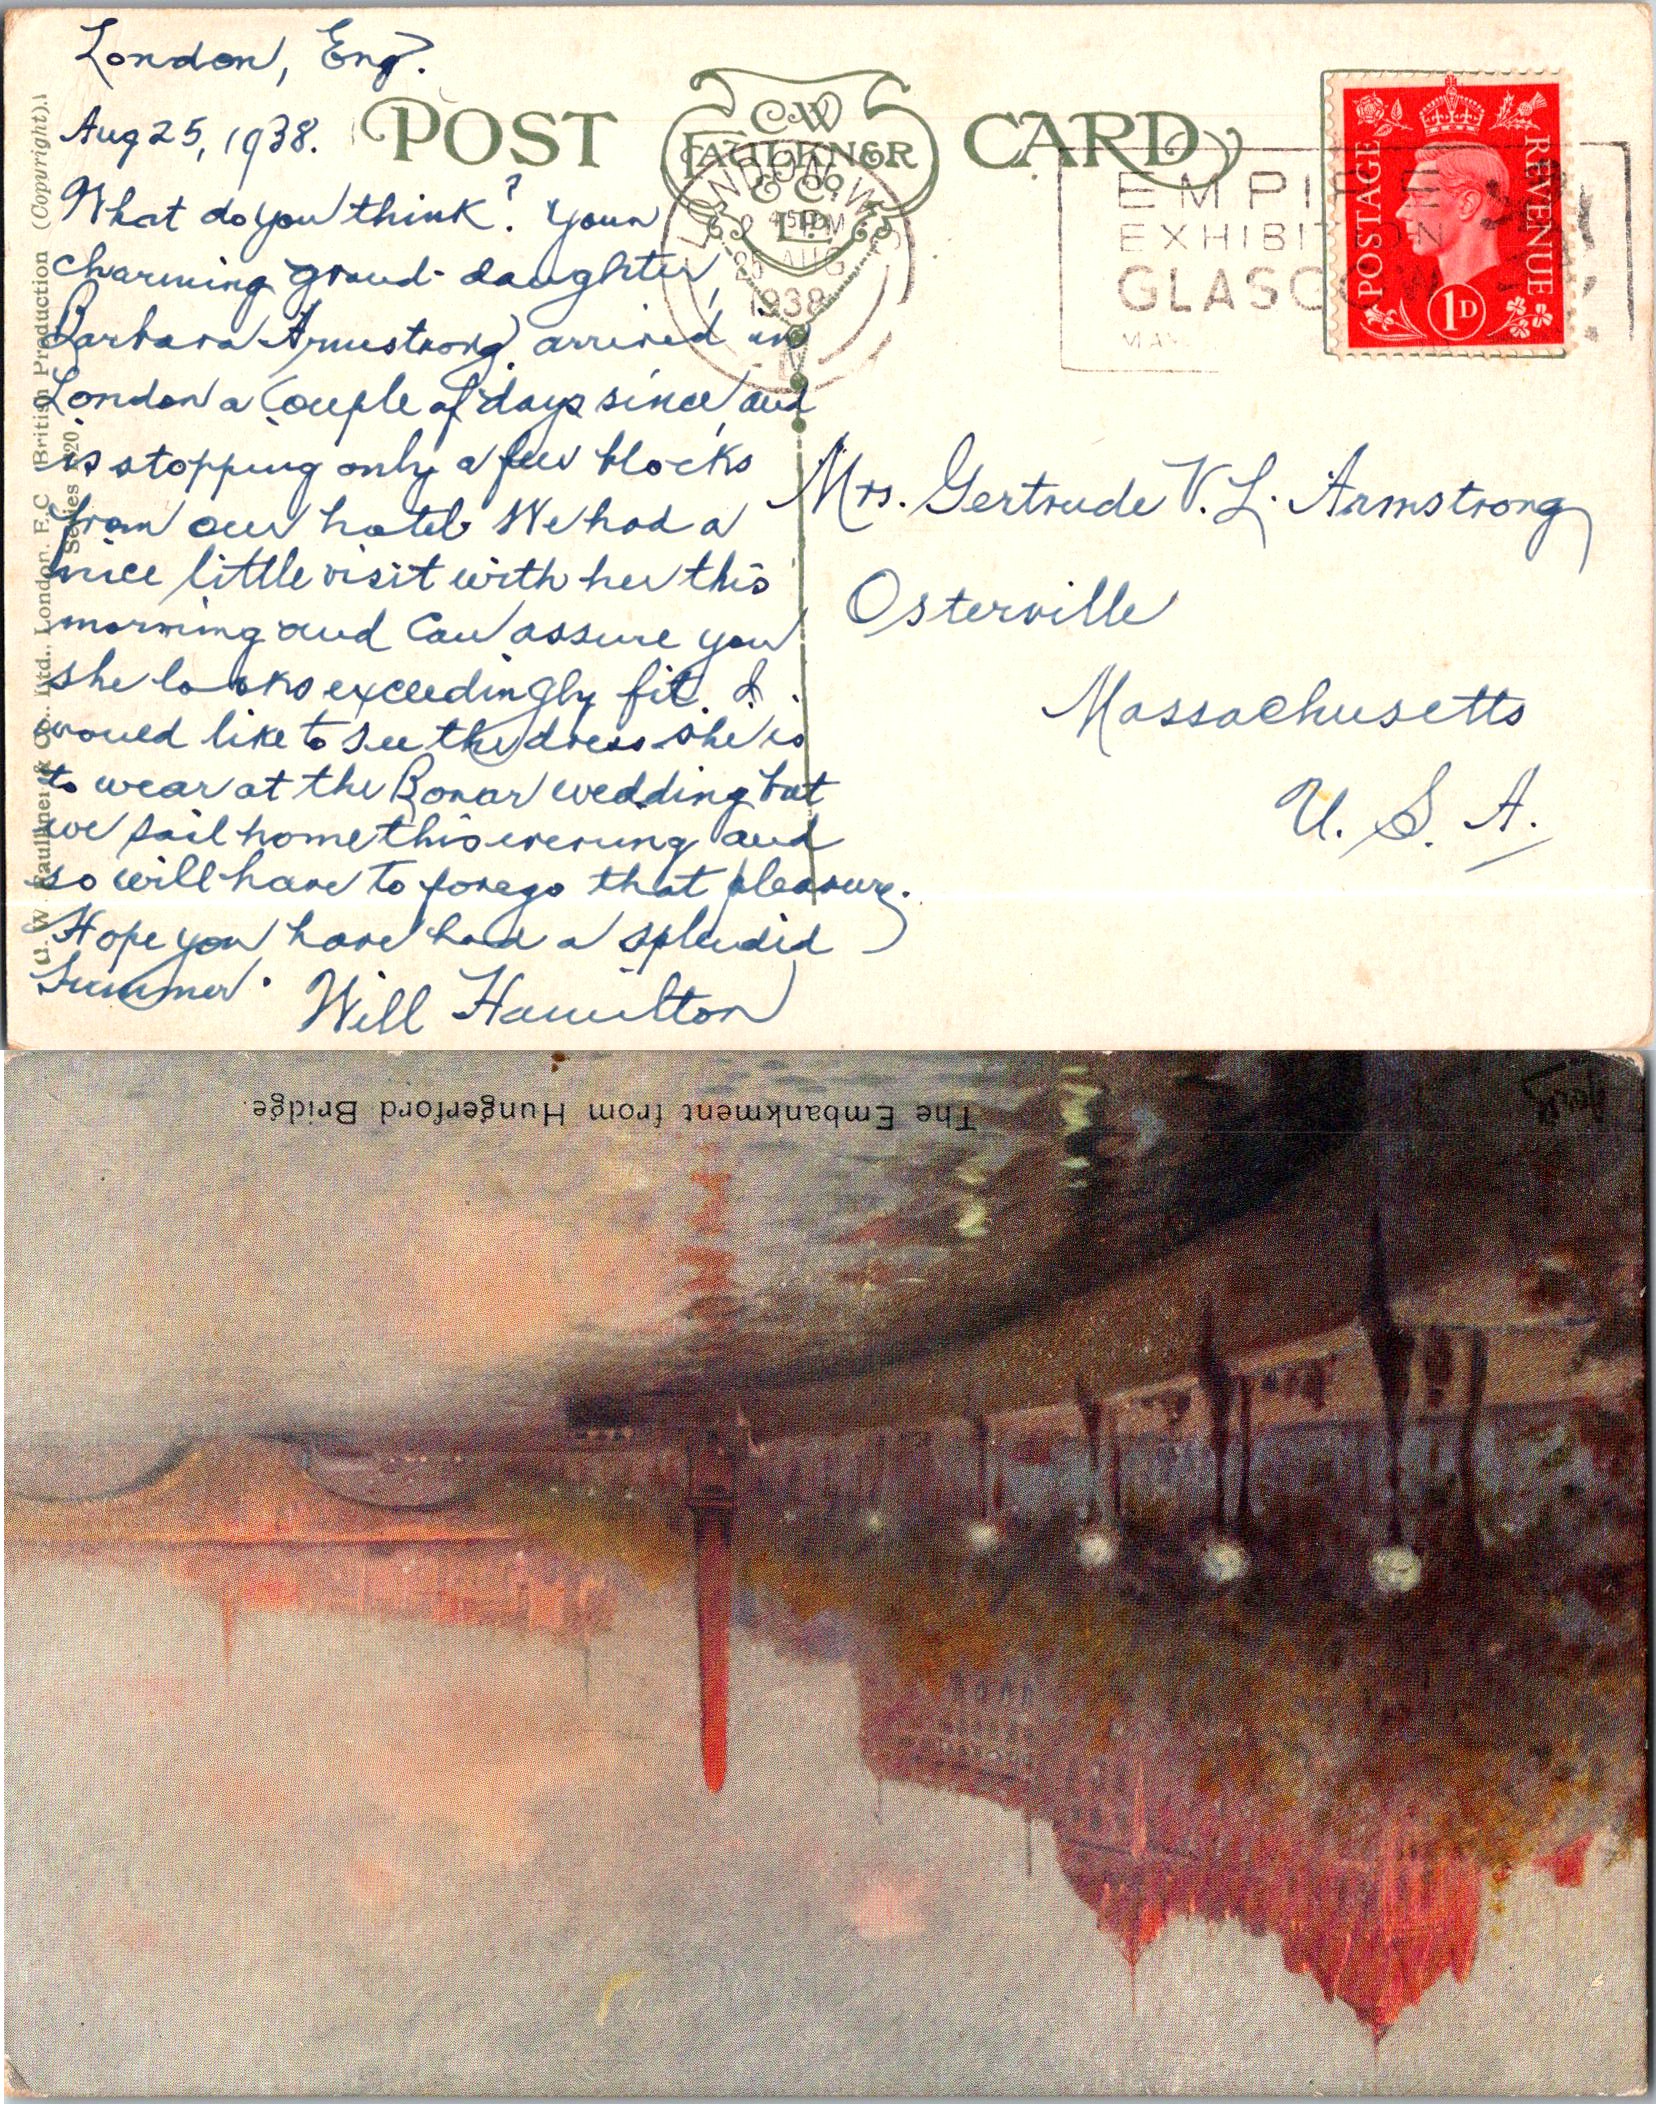 London, Eng.
Aug 25, 1938.
What do you think? Your
charming grand-daughter,
Barbara Armstrong arrived in
London a couple of days since and
is stopping only a few blocks
from our hotel. We had a
nice little visit with her this
morning and can assure you
she looks exceedingly fit. I
would like to see the dress she is
to wear at the Bonar wedding but
we sail home this evening and
so will have to forego that pleasure.
Hope you have had a splendid
Summer. Will Hamilton
POST CARD
C.W.
FAULKNER
& Co
LTD.
LONDON, W.
45PM
25 AUG
1938
EMPIRE
EXHIBITION
GLASGOW
MAY
POSTAGE
REVENUE
1D
Mrs. Gertrude V. L. Armstrong
Osterville
Massachusetts
U. S. A.
C. W. Faulkner & Co., Ltd., London, E.C. (British Production (Copyright).)
Series
The Embankment from Hungerford Bridge.